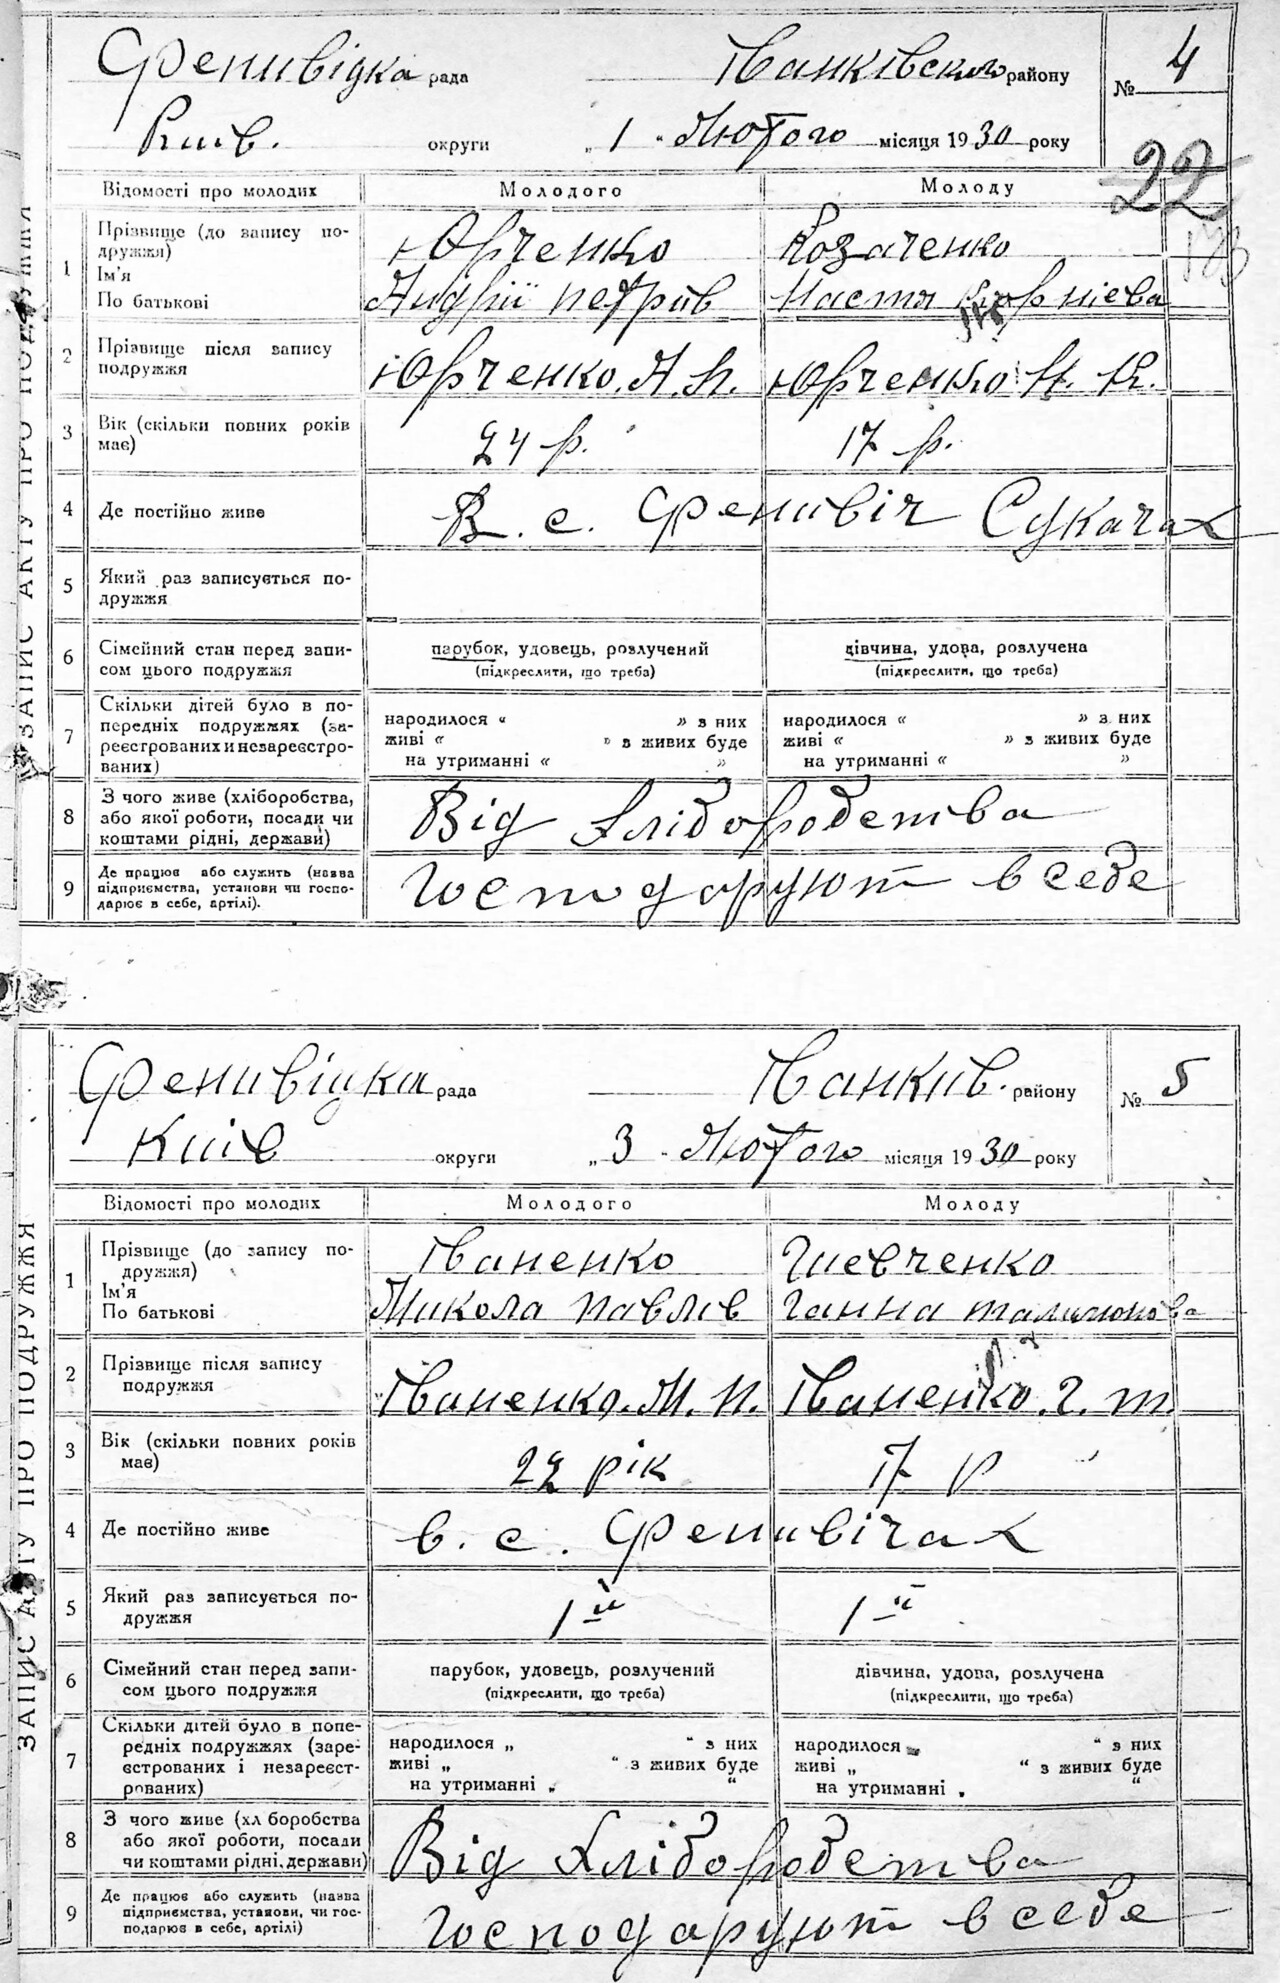 Фенивіцка рада Іванківського району № 4
Київ. округи „ 1 “ Лютого місяця 1930 року
22
173
ЗАПИС АКТУ ПРО ПОДРУЖЖЯ
Відомості про молодих Молодого Молоду
1 Прізвище (до запису по-
дружжя) Юрченко Козаченко
Ім'я
По батькові Андрій Петрів Настя Корніева
2 Прізвище після запису
подружжя Юрченко. А. П. Юрченко Н. К.
3 Вік (скільки повних років
має) 24 р. 17 р.
4 Де постійно живе В. с. Фенивіч Сукачах
5 Який раз записується по-
дружжя
6 Сімейний стан перед запи-
сом цього подружжя парубок, удовець, розлучений дівчина, удова, розлучена
(підкреслити, що треба) (підкреслити, що треба)
7 Скільки дітей було в по-
передніх подружжях (за-
реєстрованих и незареєстро-
ваних)
народилося “ ” з них народилося “ ” з них
живі “ ” з живих буде живі “ ” з живих буде
на утриманні “ ” на утриманні “ ”
8 З чого живе (хліборобства,
або якої роботи, посади чи
коштами рідні, держави) Від хліборобства
9 Де працює або служить (назва
підприємства, установи чи госпо-
дарює в себе, артілі). Господарують в себе
Фенивіцка рада Іванків. району № 5
Київ округи „ 3 “ Лютого місяця 1930 року
ЗАПИС АКТУ ПРО ПОДРУЖЖЯ
Відомості про молодих Молодого Молоду
1 Прізвище (до запису по-
дружжя) Іваненко Шевченко
Ім'я
По батькові Микола Павлів Ганна
2 Прізвище після запису
подружжя Іваненко. М. П. Іваненко. Г. Т.
3 Вік (скільки повних років
має) 22 рік 17 р
4 Де постійно живе в. с. Фенивічах
5 Який раз записується по-
дружжя 1й 1й
6 Сімейний стан перед запи-
сом цього подружжя парубок, удовець, розлучений дівчина, удова, розлучена
(підкреслити, що треба) (підкреслити, що треба)
7 Скільки дітей було в попе-
редніх подружжях (заре-
єстрованих і незареєст-
рованих)
народилося „ “ з них народилося „ “ з них
живі „ “ з живих буде живі „ “ з живих буде
на утриманні „ “ на утриманні „ “
8 З чого живе (хл боробства
або якої роботи, посади
чи коштами рідні, держави) Від хліборобства
9 Де працює або служить (назва
підприємства, установи, чи гос-
подарює в себе, артілі) Господарують в себе